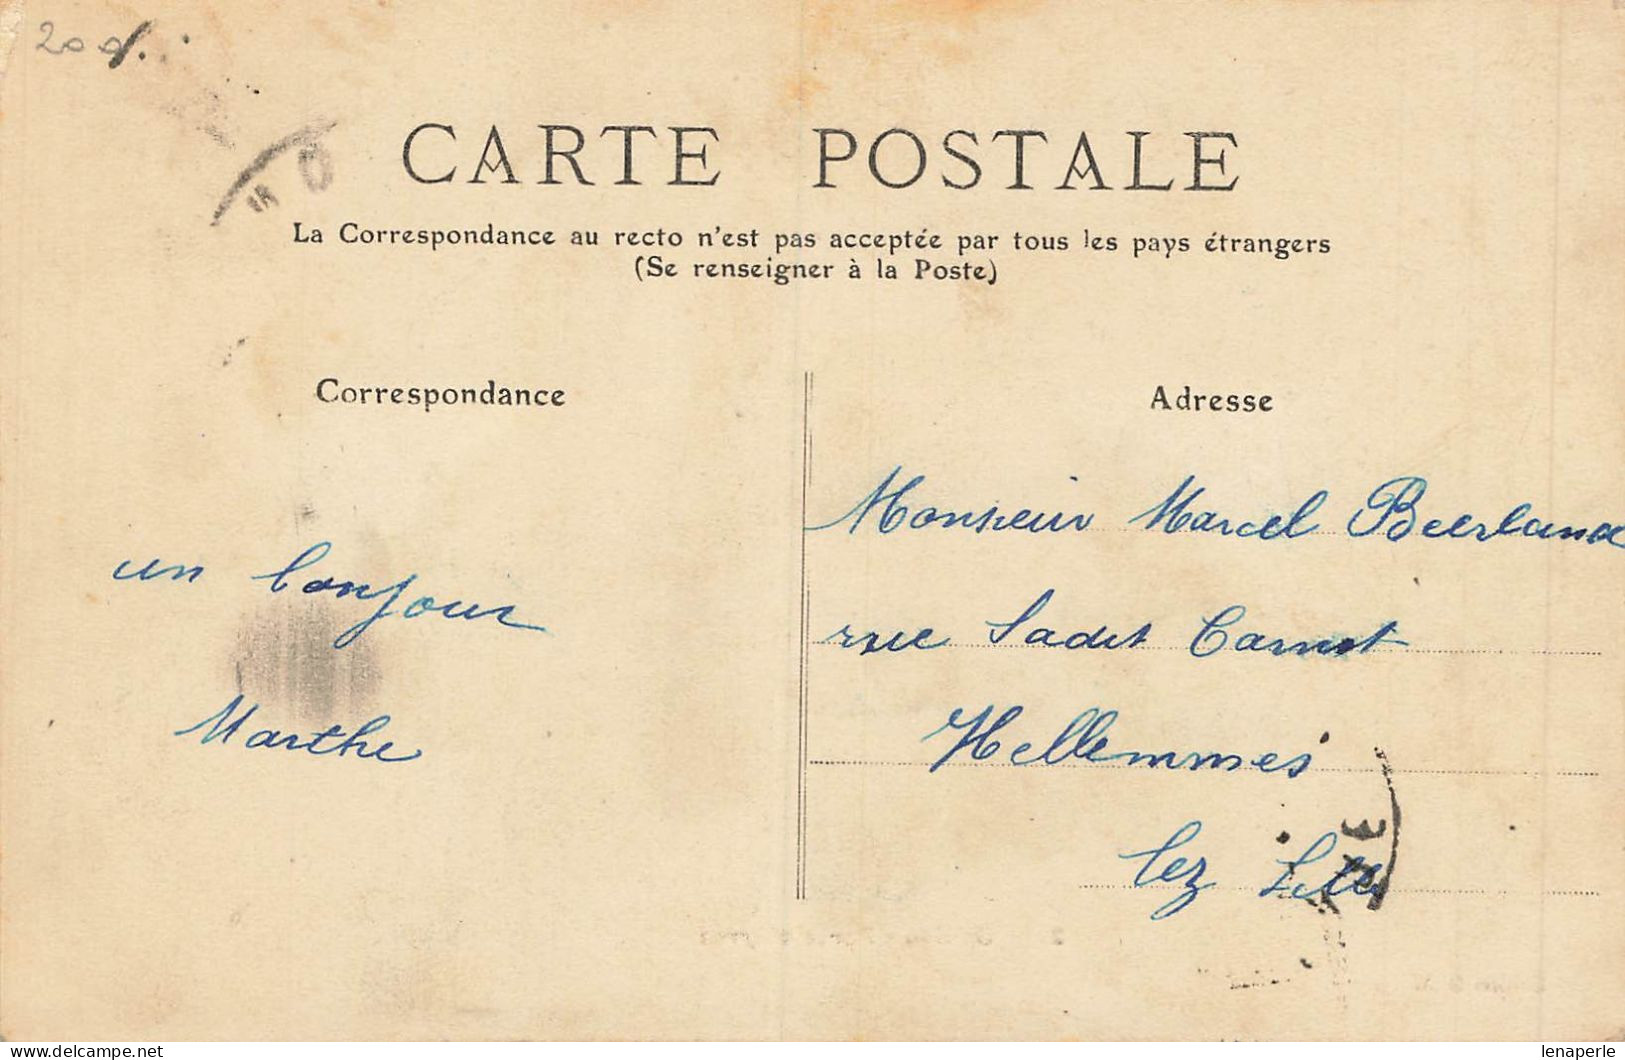 20
CARTE POSTALE
La Correspondance au recto n'est pas acceptée par tous les pays étrangers
(Se renseigner à la Poste)
Correspondance
Adresse
Monsieur Marcel Beerland
rue Sadit Carnot
Hellemmes
lez Lille
un bonjour
Marthe
delcampe.net
lenaperle